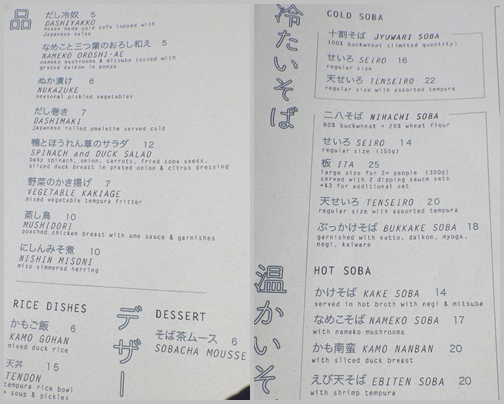 品
だし冷奴 5
DASHIYAKKO
house made cold tofu topped with
Japanese salsa
なめこと三つ葉のおろし和え 5
NAMEKO OROSHI-AE
nameko mushrooms & mitsuba tossed with
grated daikon in ponzu
ぬか漬け 6
NUKAZUKE
seasonal pickled vegetables
だし巻き 7
DASHIMAKI
Japanese rolled omelette served cold
鴨とほうれん草のサラダ 12
SPINACH and DUCK SALAD
baby spinach, onion, carrots, fried soba seeds,
sliced duck breast in grated onion & citrus dressing
野菜のかき揚げ 7
VEGETABLE KAKIAGE
mixed vegetable tempura fritter
蒸し鳥 10
MUSHIDORI
poached chicken breast with ume sauce & garnishes
にしんみそ煮 10
NISHIN MISONI
miso simmered herring
RICE DISHES
かもご飯 6
KAMO GOHAN
mixed duck rice
天丼 15
TENDON
tempura rice bowl
+ soup & pickles
デザー
DESSERT
そば茶ムース 6
SOBACHA MOUSSE
冷たいそば
COLD SOBA
十割そば JYUWARI SOBA
100% buckwheat (limited quantity)
せいろ SEIRO 16
regular size
天せいろ TENSEIRO 22
regular size with assorted tempura
二八そば NIHACHI SOBA
80% buckwheat + 20% wheat flour
せいろ SEIRO 14
regular size (150g)
板 ITA 25
large size for 2+ people (300g)
served with 2 dipping sauce sets
+$3 for additional set
天せいろ TENSEIRO 20
regular size with assorted tempura
ぶっかけそば BUKKAKE SOBA 18
garnished with natto, daikon, myoga,
negi, kaiware
温かいそ
HOT SOBA
かけそば KAKE SOBA 14
served in hot broth with negi & mitsuba
なめこそば NAMEKO SOBA 17
with nameko mushrooms
かも南蛮 KAMO NANBAN 20
with sliced duck breast
えび天そば EBITEN SOBA 20
with shrimp tempura